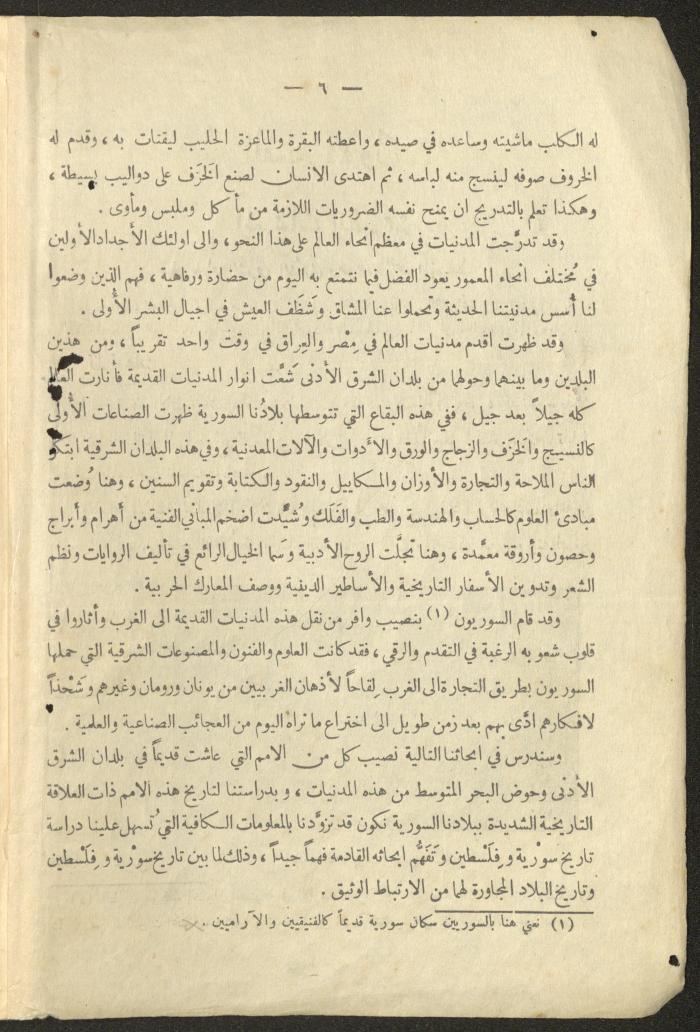 — ٦ —
له الكلب ماشيته وساعده في صيده ، واعطته البقرة والماعزة الحليب ليقتات به ، وقدم له
الخروف صوفه لينسج منه لباسه ، ثم اهتدى الانسان لصنع الخَزَف على دواليب بسيطة ،
وهكذا تعلم بالتدريج ان يمنح نفسه الضروريات اللازمة من مأكل وملبس ومأوى .
وقد تدرَّجت المدنيات في معظم انحاء العالم على هذا النحو ، والى اولئك الأجداد الأولين
في مُختلف انحاء المعمور يعود الفضل فيما نتمتع به اليوم من حضارة ورفاهية ، فهم الذين وضعوا
لنا أُسس مدنيتنا الحديثة وتحملوا عنا المشاق وشَظَف العيش في اجيال البشر الأُولى .
وقد ظهرت اقدم مدنيات العالم في مِصْر والعِراق في وقت واحد تقريباً ، ومن هذين
البلدين وما بينهما وحولهما من بلدان الشرق الأدنى شَعَّت انوار المدنيات القديمة فأنارت العالم
كله جيلاً بعد جيل ، ففي هذه البقاع التي تتوسطها بلادُنا السورية ظهرت الصناعات الأُولى
كالنسيج والخَزَف والزجاج والورق والأدوات والآلات المعدنية ، وفي هذه البلدان الشرقية ابتكر
الناس الملاحة والتجارة والأوزان والمكاييل والنقود والكتابة وتقويم السنين ، وهنا وُضعت
مبادئ العلوم كالحساب والهندسة والطب والفَلَك وشُيِّدت اضخم المباني الفنية من أهرام وأبراج
وحصون وأروقة معمَّدة ، وهنا تجلَّت الروح الأدبية وسَما الخيال الرائع في تأليف الروايات ونظم
الشعر وتدوين الأسفار التاريخية والأساطير الدينية ووصف المعارك الحربية .
وقد قام السوريون (١) بنصيب وافر من نقل هذه المدنيات القديمة الى الغرب وأثاروا في
قلوب شعوبه الرغبة في التقدم والرقي ، فقد كانت العلوم والفنون والمصنوعات الشرقية التي حملها
السوريون بطريق التجارة الى الغرب لِقاحاً لأذهان الغربيين من يونان ورومان وغيرهم وشَحْذاً
لافكارهم ادَّى بهم بعد زمن طويل الى اختراع ما نراه اليوم من العجائب الصناعية والعلمية .
وسندرس في ابحاثنا التالية نصيب كل من الامم التي عاشت قديماً في بلدان الشرق
الأدنى وحوض البحر المتوسط من هذه المدنيات ، وبدراستنا لتاريخ هذه الامم ذات العلاقة
التاريخية الشديدة ببلادنا السورية نكون قد تزوَّدنا بالمعلومات الكافية التي تُسهل علينا دراسة
تاريخ سورْية وفِلَسْطين وتَفَهُّم ابحاثه القادمة فهماً جيداً ، وذلك لما بين تاريخ سورْية وفِلَسْطين
وتاريخ البلاد المجاورة لهما من الارتباط الوثيق .
(١) نعني هنا بالسوريين سكان سورية قديماً كالفنيقيين والآراميين .